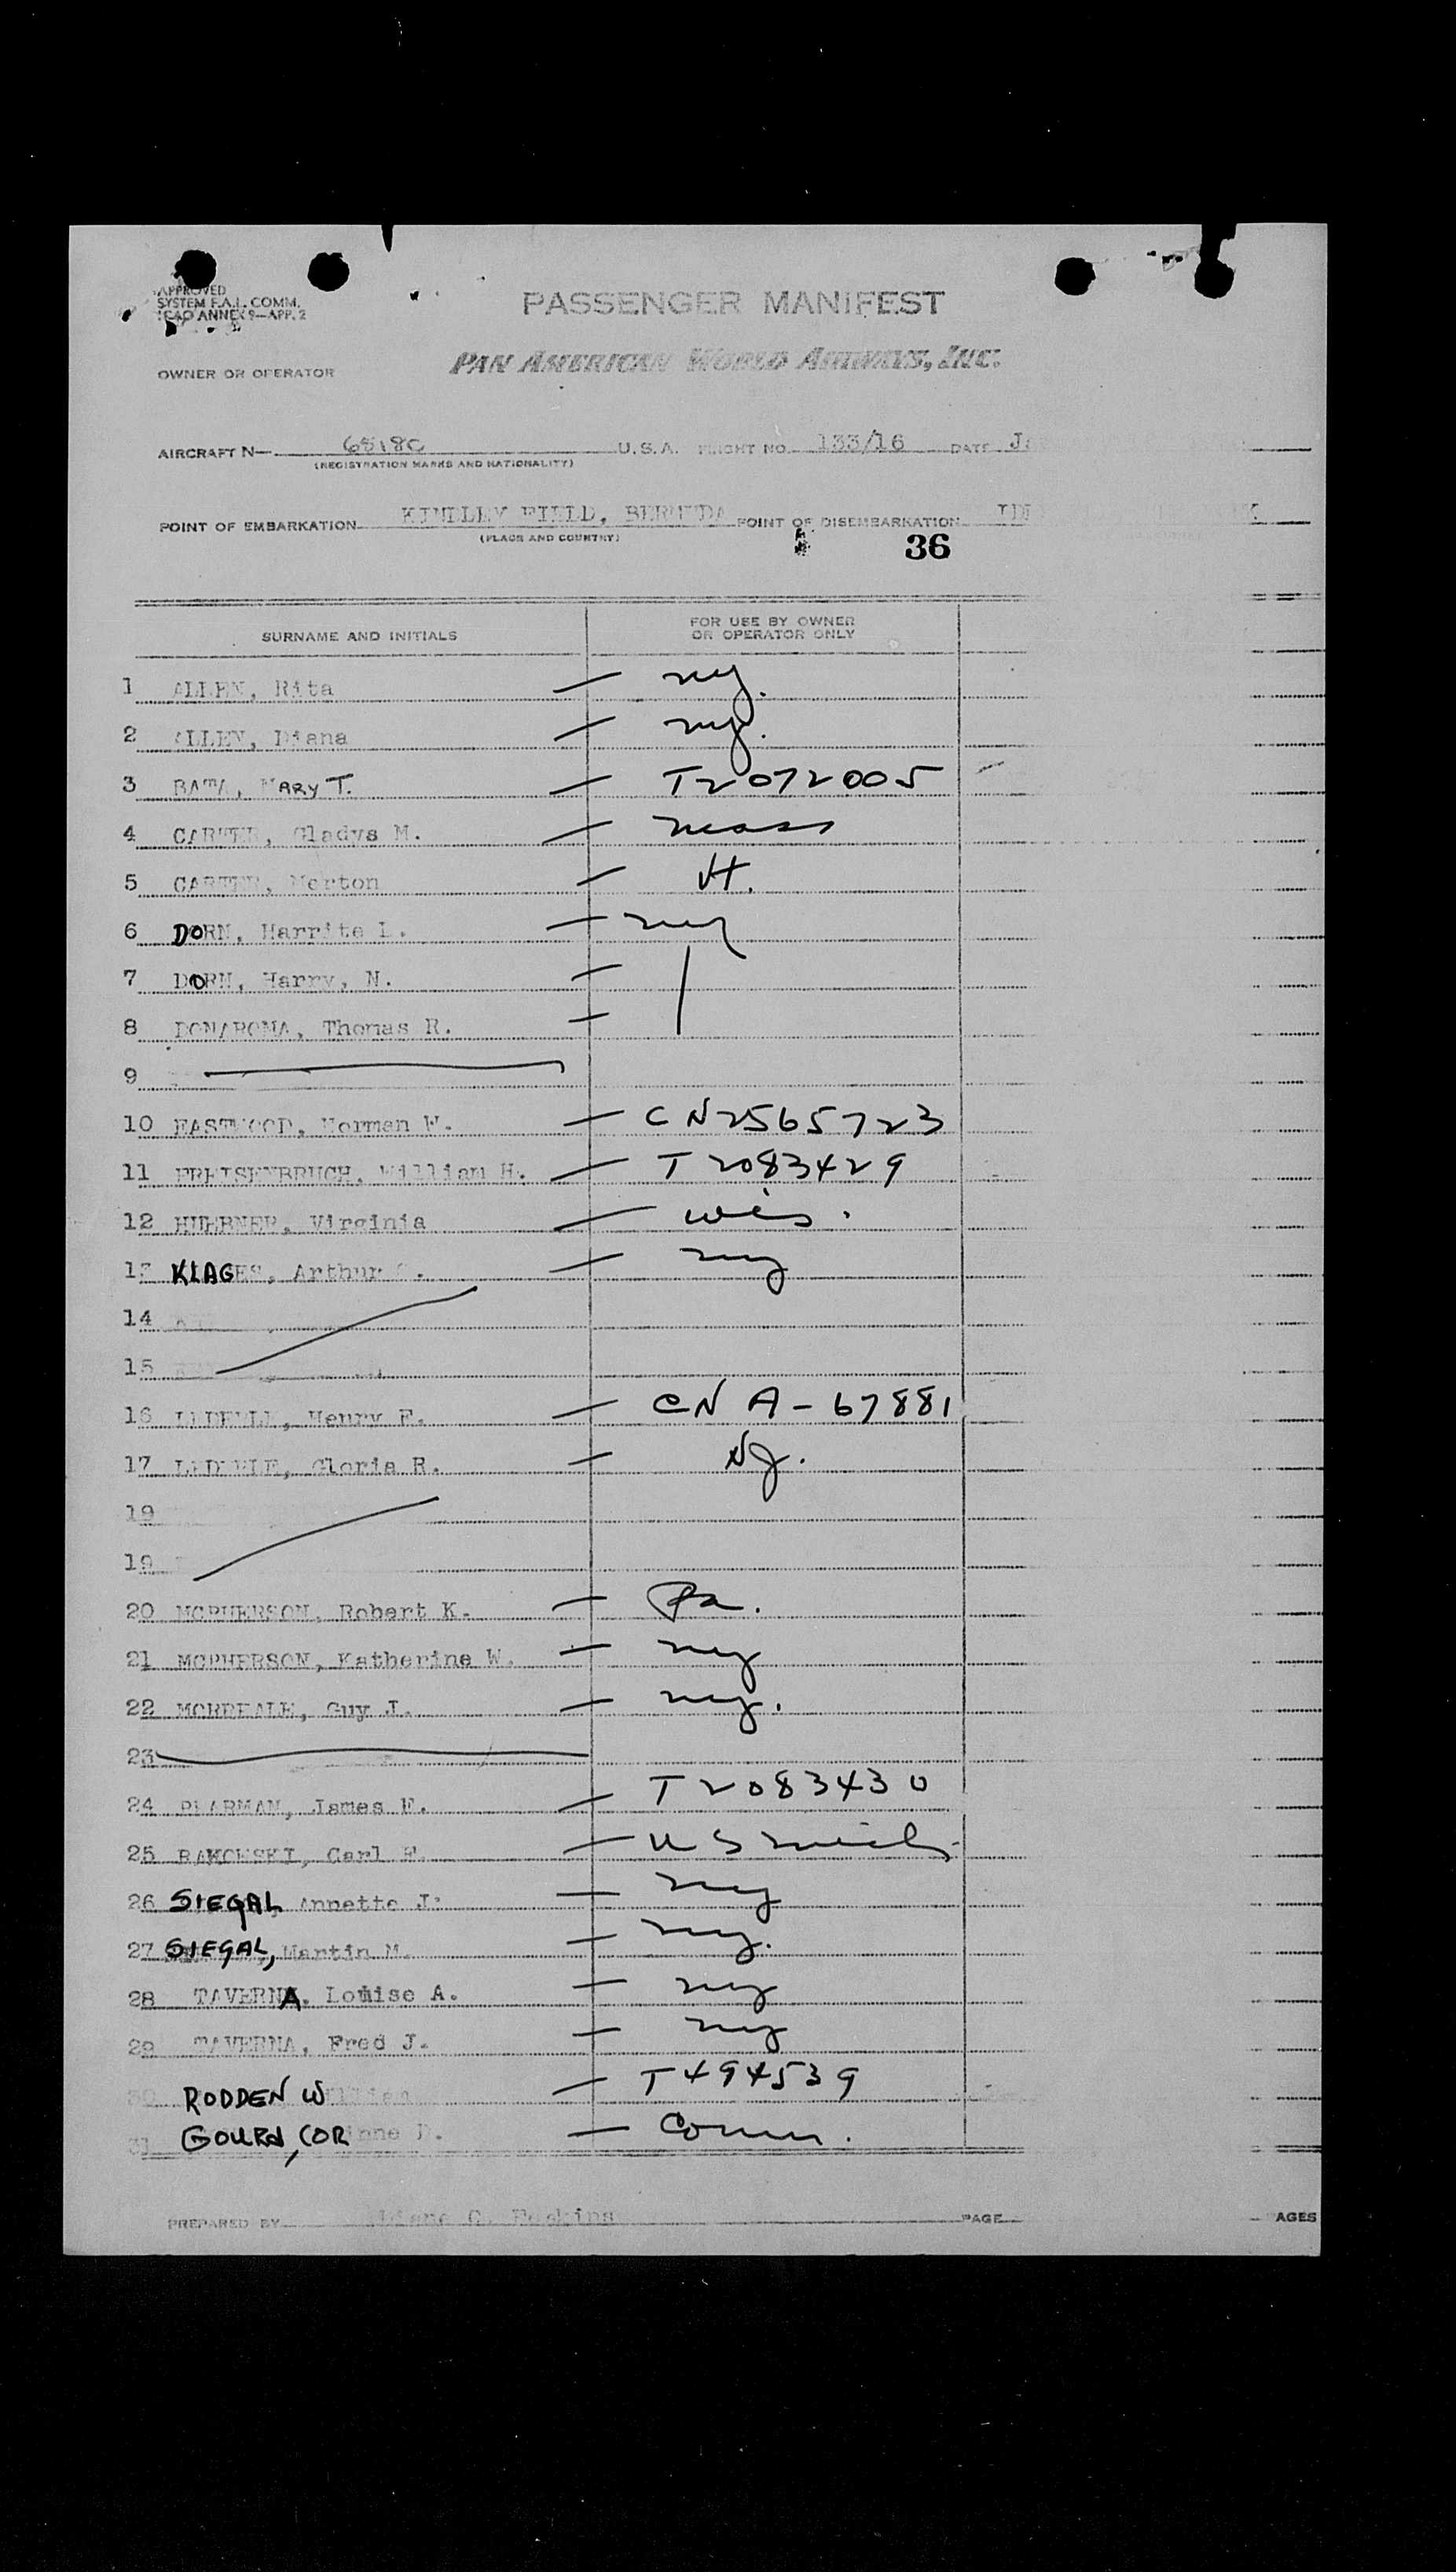 APPROVED
SYSTEM F.A.L. COMM.
ICAO ANNEX 9—APP. 2
PASSENGER MANIFEST
OWNER OR OPERATOR
PAN AMERICAN WORLD AIRWAYS, INC.
AIRCRAFT N— U.S.A. FLIGHT NO. 133/16 DATE
(REGISTRATION MARKS AND NATIONALITY)
POINT OF EMBARKATION KINDLEY FIELD, BERMUDA POINT OF DISEMBARKATION
(PLACE AND COUNTRY)
36
SURNAME AND INITIALS FOR USE BY OWNER OR OPERATOR ONLY
1 ALLEN, Rita — ny.
2 ALLEN, Diana — ny.
3 BATA, MARY T. — T2072005
4 CARTER, Gladys M. — mass
5 CARTER, Merton —
6 DORN, Harrite L. — ny
7 DORN, Harry, N. —
8 DONAROMA, Thomas R. —
9
10 EASTWOOD, Norman W. — CN2565723
11 FREISENBRUCH, William H. — T2083429
12 HUEBNER, Virginia — wis.
13 KLAGES, Arthur — ny
14
15
16 Henry F. — CN A-67881
17 Gloria R. — NJ.
19
19
20 MCPHERSON, Robert K. — Pa.
21 MCPHERSON, Katherine W. — ny
22 MORREALE, Guy J. — ny.
23
24 PEARMAN, James E. — T2083430
25 Carl — US mich
26 SIEGAL Annette J. — ny
27 SIEGAL, Martin M. — ny.
28 TAVERNA, Louise A. — ny
29 TAVERNA, Fred J. — ny
30 RODDEN William — T494539
31 GOURD, CORinne D. — Conn.
PREPARED BY PAGE AGES